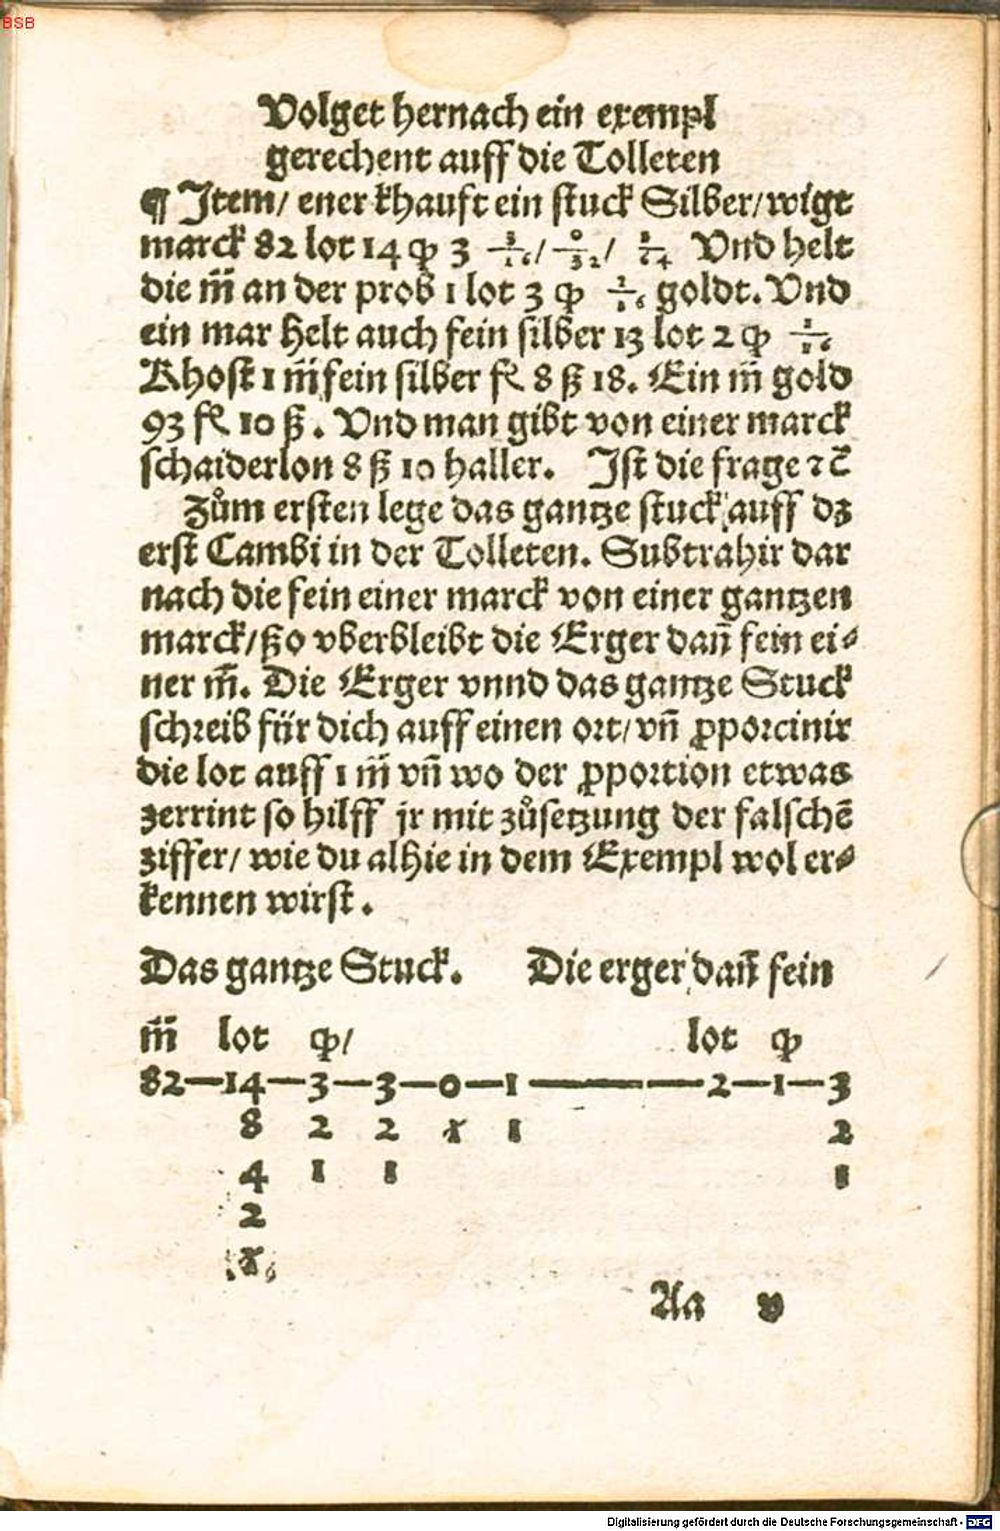 BSB
Volget hernach ein exempl
gerechent auff die Tolleten
¶ Item/ ener khauft ein stuck Silber/wigt
marck 82 lot 14 qͥ 3 3/16/ 0/32/ 1/64 Vnd helt
die m̃ an der prob 1 lot 3 qͥ 2/16 goldt. Vnd
ein mar helt auch fein silber 13 lot 2 qͥ 1/16
Khost 1 m̃ fein silber fl 8 ß 18. Ein m̃ gold
93 fl 10 ß. Vnd man gibt von einer marck
schaiderlon 8 ß 10 haller. Ist die frage ⁊c̄
Zům ersten lege das gantze stuck auff dz
erst Cambi in der Tolleten. Subtrahir dar
nach die fein einer marck von einer gantzen
marck/ßo vberbleibt die Erger dañ fein ei⸗
ner m̃. Die Erger vnnd das gantze Stuck
schreib für dich auff einen ort/vñ ꝓporcinir
die lot auff 1 m̃ vñ wo der ꝓportion etwas
zerrint so hilff jr mit zůsetzung der falschē
ziffer/ wie du alhie in dem Exempl wol er⸗
kennen wirst.
Das gantze Stuck. Die erger dañ fein
m̃ lot qͥ/ lot qͥ
82—14—3—3—0—1————2—1—3
8 2 2 x 1 2
4 1 1 1
2
x
Aa v
Digitalisierung gefördert durch die Deutsche Forschungsgemeinschaft - DFG